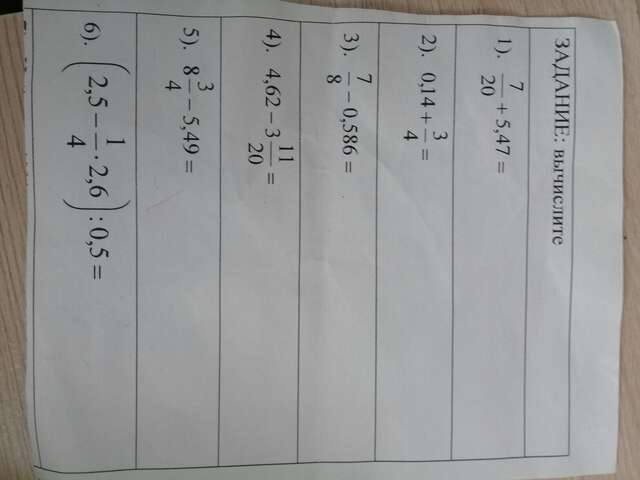 ЗАДАНИЕ: вычислите
1). 7/20 + 5,47 =
2). 0,14 + 3/4 =
3). 7/8 − 0,586 =
4). 4,62 − 3 11/20 =
5). 8 3/4 − 5,49 =
6). (2,5 − 1/4 · 2,6) : 0,5 =